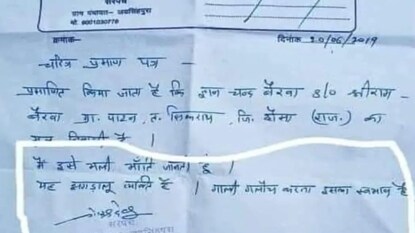 सरपंच
ग्राम पंचायत - जयसिंहपुरा
मो. 9001030778
क्रमांक- दिनांक 20/06/2019
चरित्र प्रमाण पत्र -
प्रमाणित किया जाता है कि ज्ञान चन्द बैरवा S/o श्रीराम-
बैरवा ग्रा. पाटन, त. सिकराय, जि. दौसा (राज.) का
मूल निवासी है ।
मैं इसे भली भाँति जानता हूँ ।
यह झगड़ालू व्यक्ति है । गाली गलौच करना इसका स्वभाव है
सरपंच